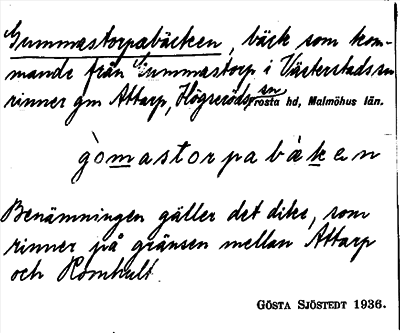 Gummastorpabäcken, bäck som kom-
mande från Gummastorp i Västerstads sn
rinner gm Attarp, Högseröds sn
Frosta hd, Malmöhus län.
gòmastorpabàken
Benämningen gäller det dike, som
rinner på gränsen mellan Attarp
och Romhult.
GÖSTA SJÖSTEDT 1936.